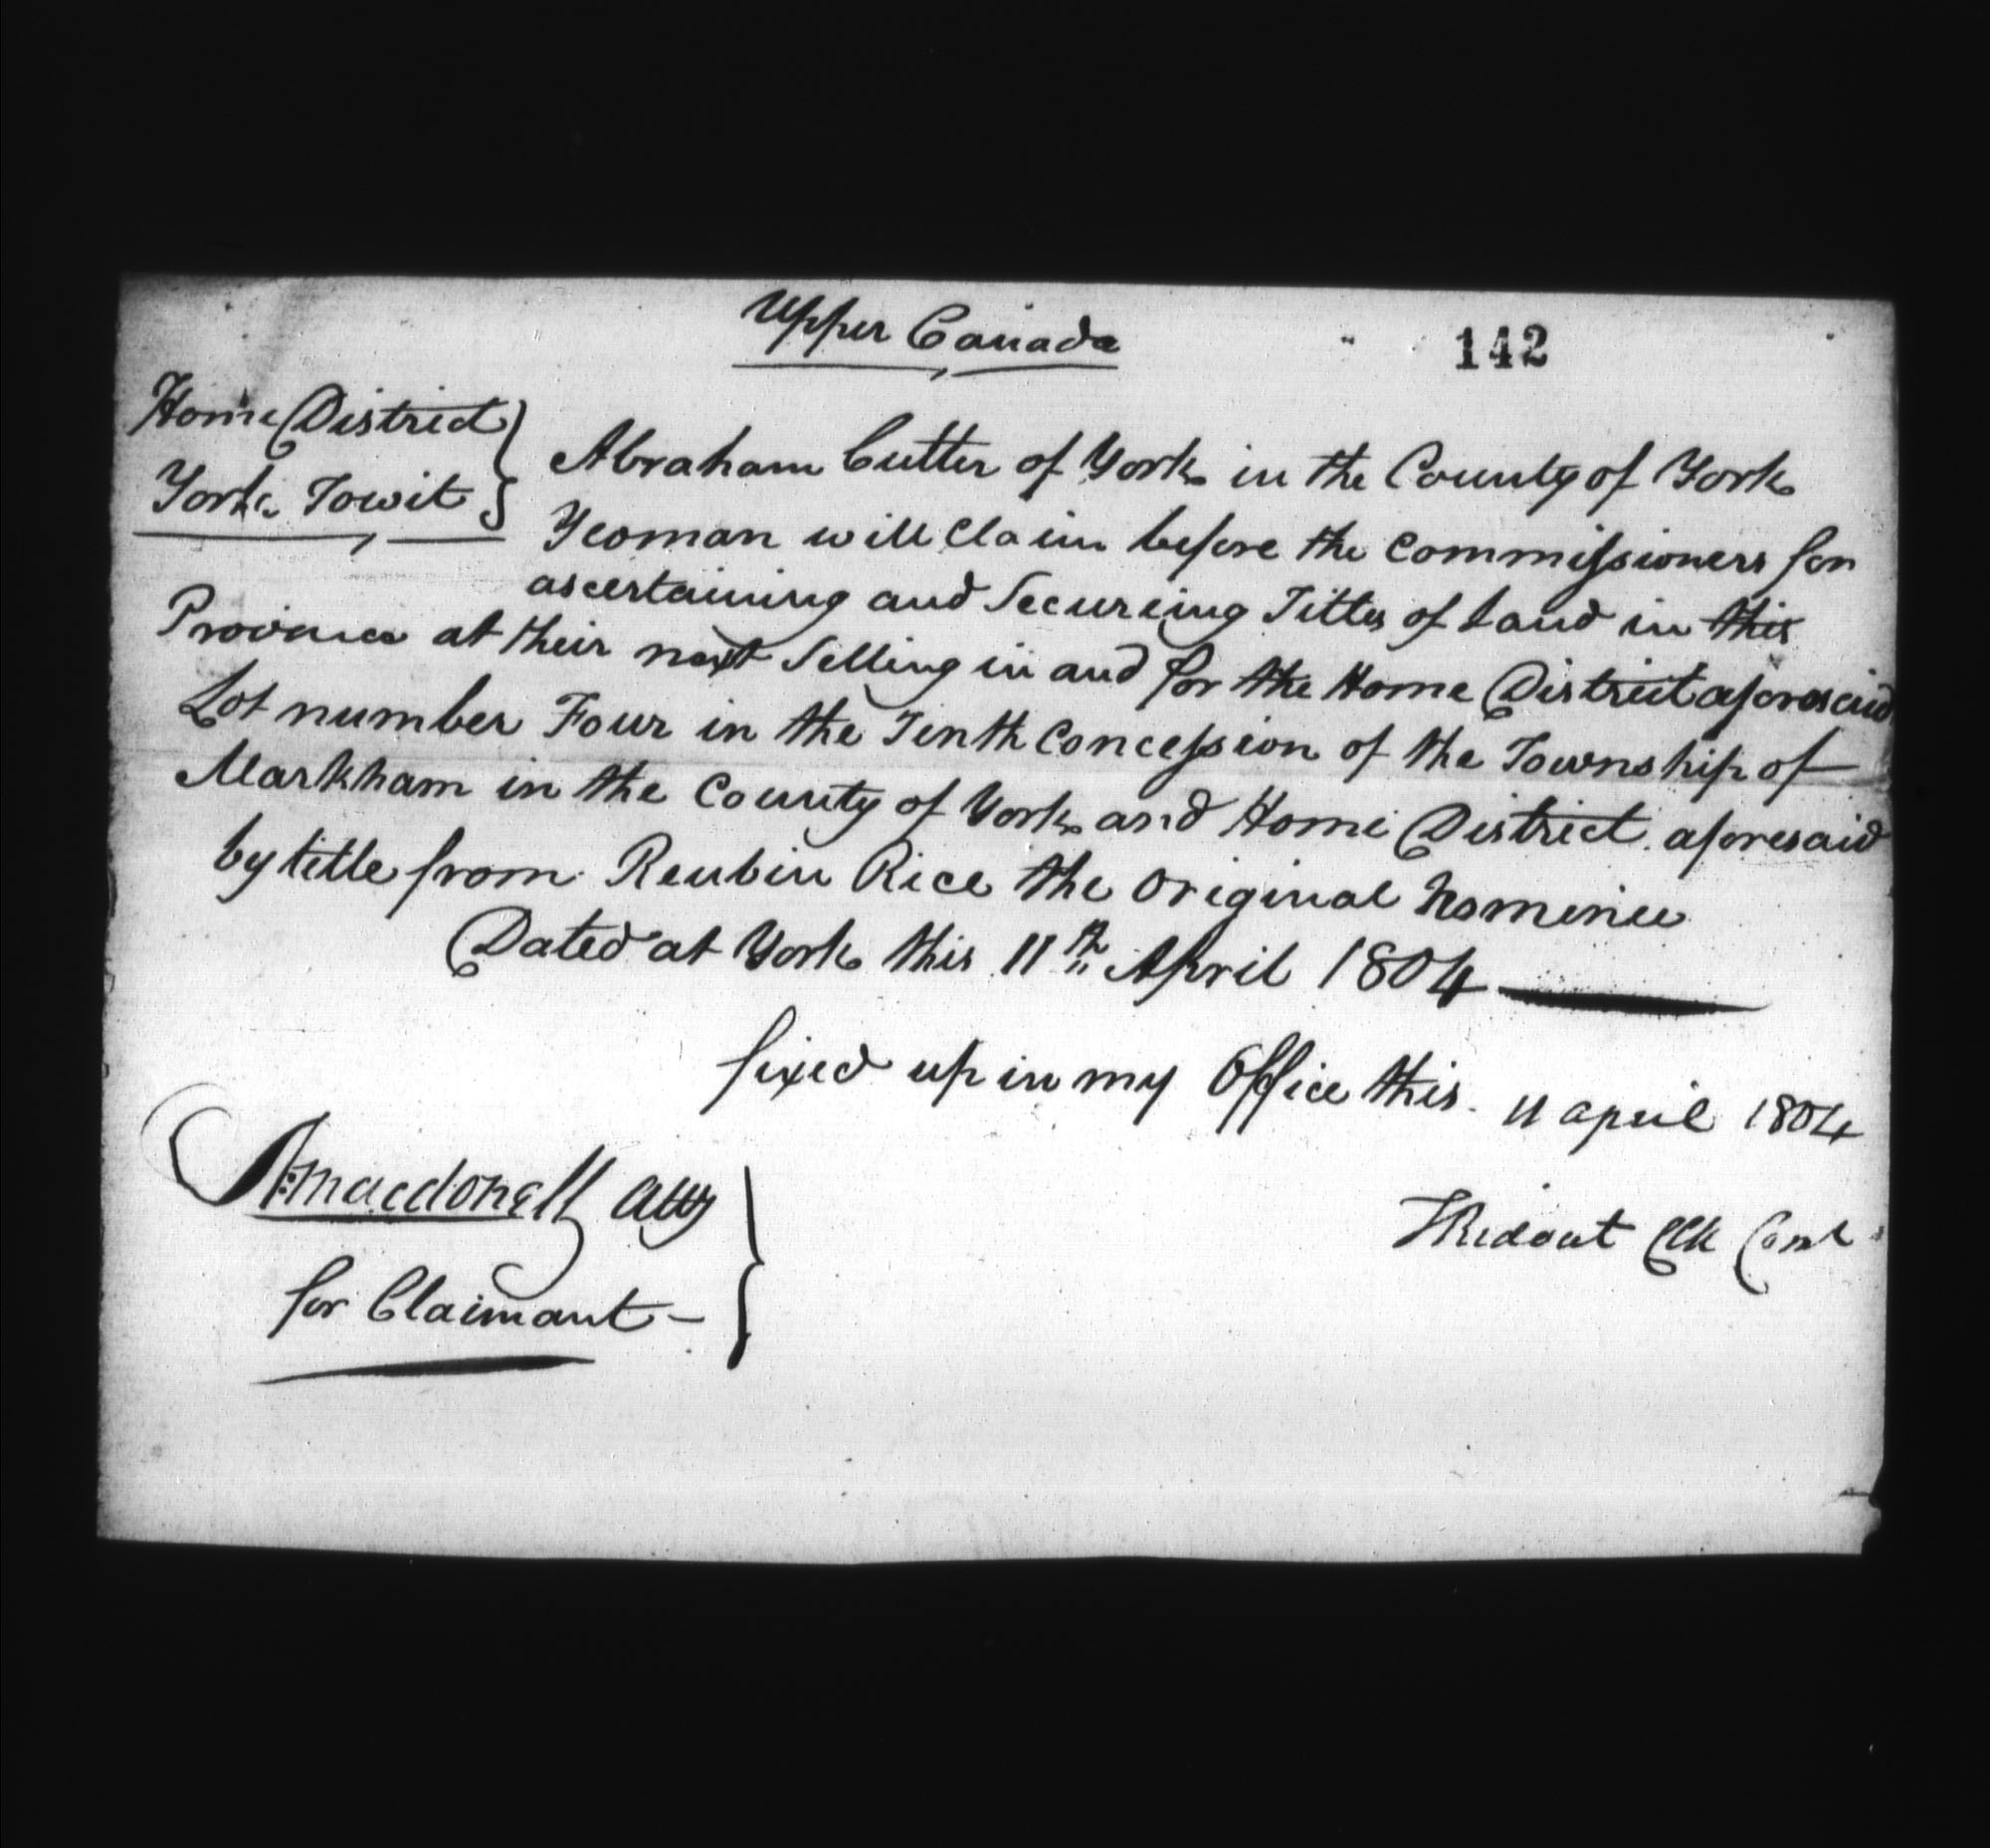 Upper Canada
142
Home District
York Towit
Abraham Cutter of York in the County of York
Yeoman will Claim before the Commissioners for
ascertaining and Secureing Titles of Land in this
Province at their next Setting in and for the Home District aforesaid
Lot number Four in the Tenth Concession of the Township of
Markham in the County of York and Home District aforesaid
by title from Reubin Rice the Original Nominee
Dated at York this 11th April 1804
fixed up in my Office this 11 april 1804
A: Macdonell Atty
for Claimant —
TRidout Clk